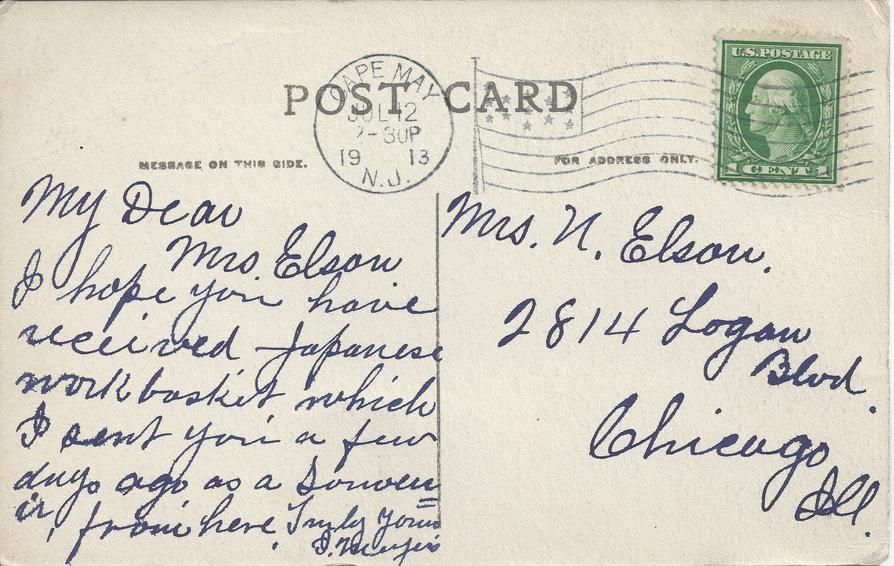 POST CARD
CAPE MAY
JUL 12
2-30P
19 13
N.J.
U.S. POSTAGE
1 CENT 1
MESSAGE ON THIS SIDE.
FOR ADDRESS ONLY.
My Dear
Mrs Elson
I hope you have
received Japanese
workbasket which
I sent you a few
days ago as a souven=
ir, from here. Truly Yours
Mrs. N. Elson.
2814 Logan
Blvd.
Chicago
Ill.